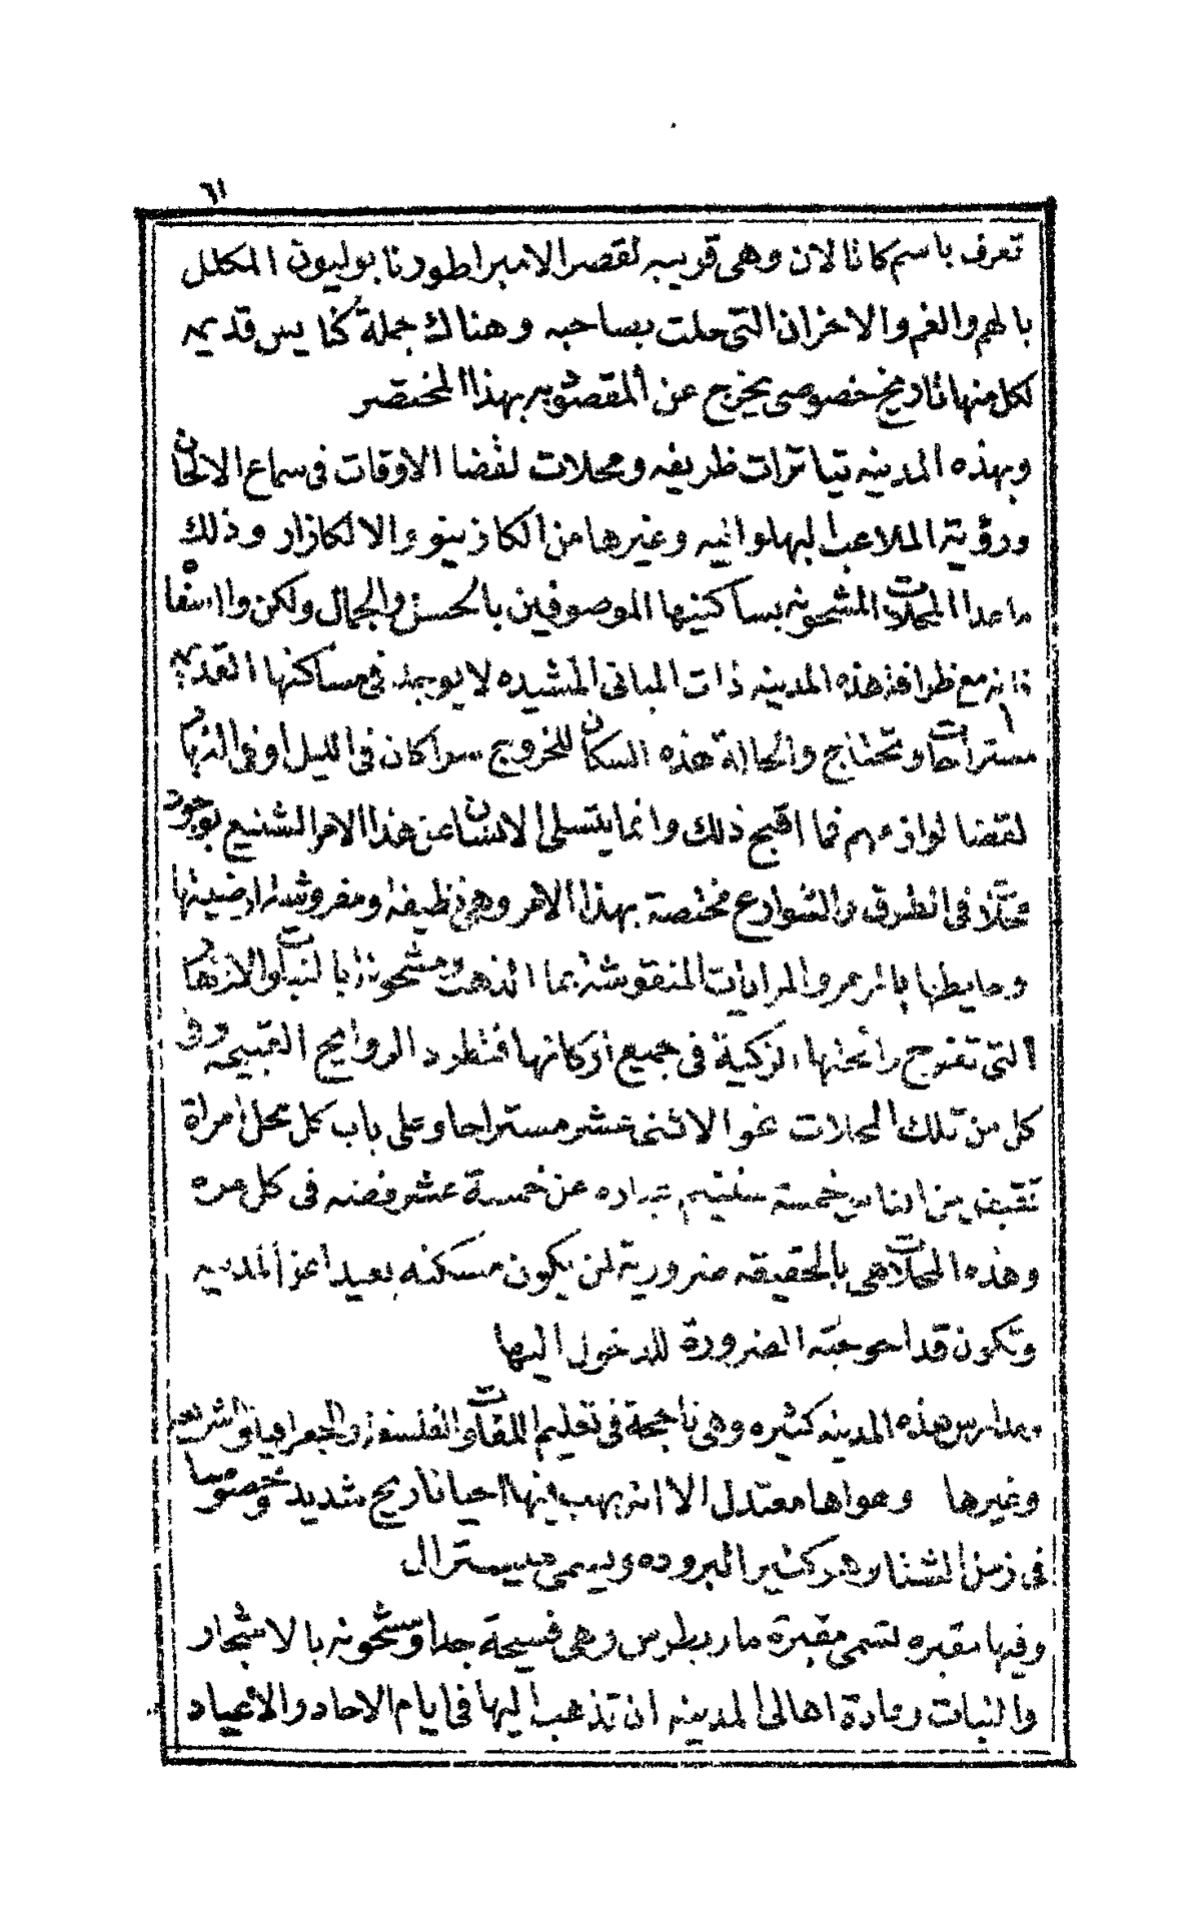 ١٦
تعرف باسم كاتالان وهى قريبه لقصر الامبراطور نابوليون المكلل
بالهم والغم والاحزان التى حلت بصاحبه وهناك جملة كنايس قديمه
لكل منها تاريخ خصوصى يخرج عن المقصود بهذا المختصر
وبهذه المدينه تياترات ظريفه ومحلات لقضا الاوقات فى سماع الالحان
ورؤية الملاعب البهلوانيه وغيرها من الكازينو والالكازار وذلك
ماعدا المحلات المشحونه بساكنيها الموصوفين بالحسن والجمال ولكن وااسفاه
فانه مع ظرافة هذه المدينه ذات المبانى المشيده لا يوجد فى مساكنها القديمه
مستراحات وتحتاج والحالة هذه السكان للخروج سواكان فى الليل اوفى النهار
لقضا لوازمهم فما اقبح ذلك وانما يتسلى الانسان عن هذا الامر الشنيع بوجود
محلات فى الطرق والشوارع مختصة بهذا الامر وهى نظيفة ومفروشة ارضيتها
وحايطها بالمرمر والمرايات المنقوشة بما الذهب ومشحونة بالنباتات والازهار
التى تفوح رائحتها الزكية فى جميع اركانها فتطرد الروايح القبيحه وفى
كل من تلك المحلات نحو الاثنى عشر مستراحا وعلى باب كل محل امراة
تقبض من الناس خمسة سنتيم عباره عن خمسة عشر فضه فى كل مره
وهذه المحلات هى بالحقيقه ضرورية لمن يكون مسكنه بعيدا عن المدينه
وتكون قد احوجته الضرورة للدخول اليها
ومدارس هذه المدينه كثيره وهى ناجحة فى تعليم اللغات والفلسفة والجغرافيا والشريعه
وغيرها وهواها معتدل الا انه يهب فيها احيانا ريح شديد وخصوصا
فى زمن الشتاء وهو كثير البروده ويسمى ميسترال
وفيها مقبره تسمى مقبرة ماربطرس وهى فسيحة جدا ومشحونه بالاشجار
والنبات وعادة اهالى المدينه ان تذهب اليها فى ايام الاحاد والاعياد